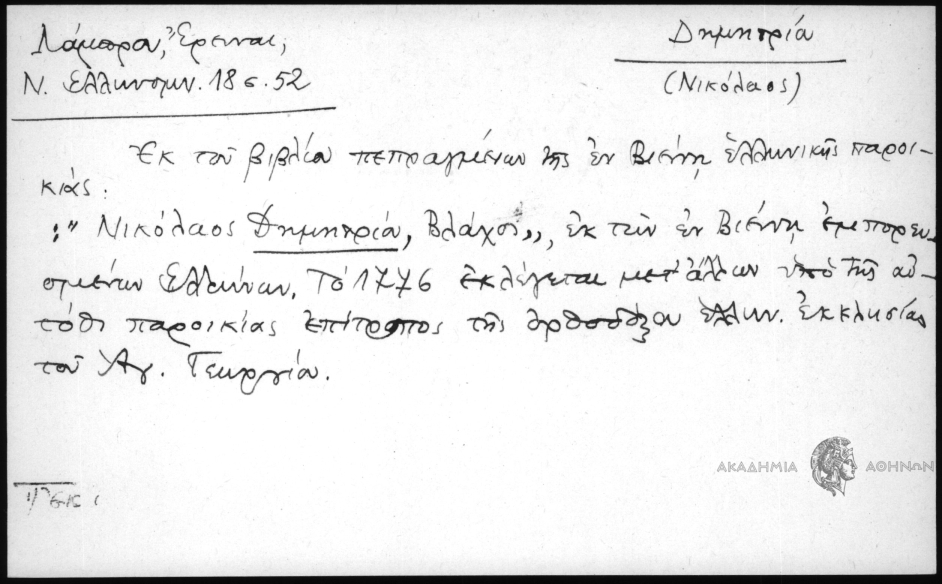 Λάμπρου, Ἔρευναι,
Ν. Ἑλληνομν. 18 σ. 52
Δημητρίᾳ
(Νικόλαος)
Ἐκ τοῦ βιβλίου πεπραγμένων τῆς ἐν Βιέννῃ ἑλληνικῆς παροι-
κίας:
:" Νικόλαος Δημητρία, Βλάχοι,, ἐκ τῶν ἐν Βιέννῃ ἐμπορευ-
ομένων Ἑλλήνων. Τό 1776 ἐκλέγεται μετ' ἄλλων ὑπό τῆς αὐ-
τόθι παροικίας ἐπίτροπος τῆς ὀρθοδόξου ἑλλην. ἐκκλησίας
τοῦ Ἁγ. Γεωργίου.
ΑΚΑΔΗΜΙΑ ΑΘΗΝΩΝ